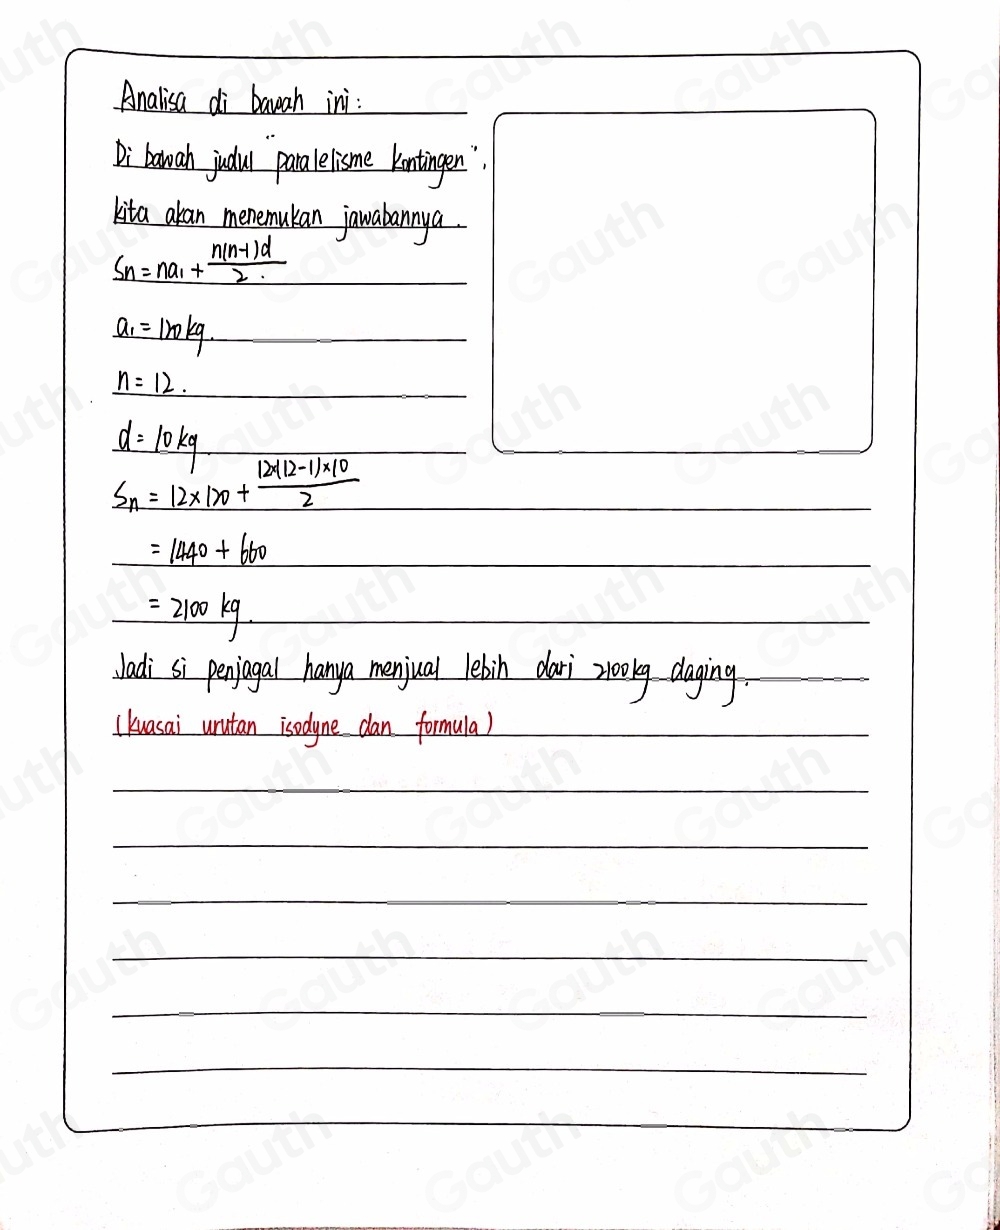 Analisa di bawah ini:
Di bawah judul "paralelisme kontingen",
kita akan menemukan jawabannya.
Sn = na₁ + n(n-1)d/2.
a₁ = 120 kg.
n = 12.
d = 10 kg.
Sn = 12×120 + 12×(12-1)×10/2
= 1440 + 660
= 2100 kg.
Jadi si penjagal hanya menjual lebih dari 2100 kg daging.
(kuasai urutan isodyne dan formula)
Gauth